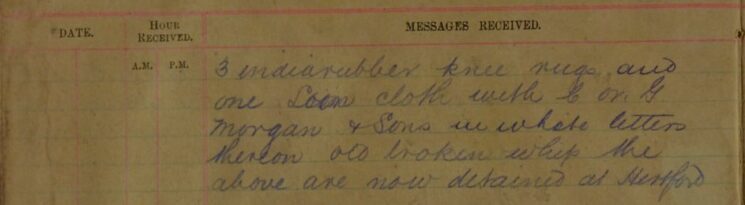 DATE.
HOUR RECEIVED.
MESSAGES RECEIVED.
A.M. P.M.
3 indiarubber knee rugs and
one cloth with C or G
Morgan & Sons in white letters
thereon old broken whip the
above are now detained at Hertford